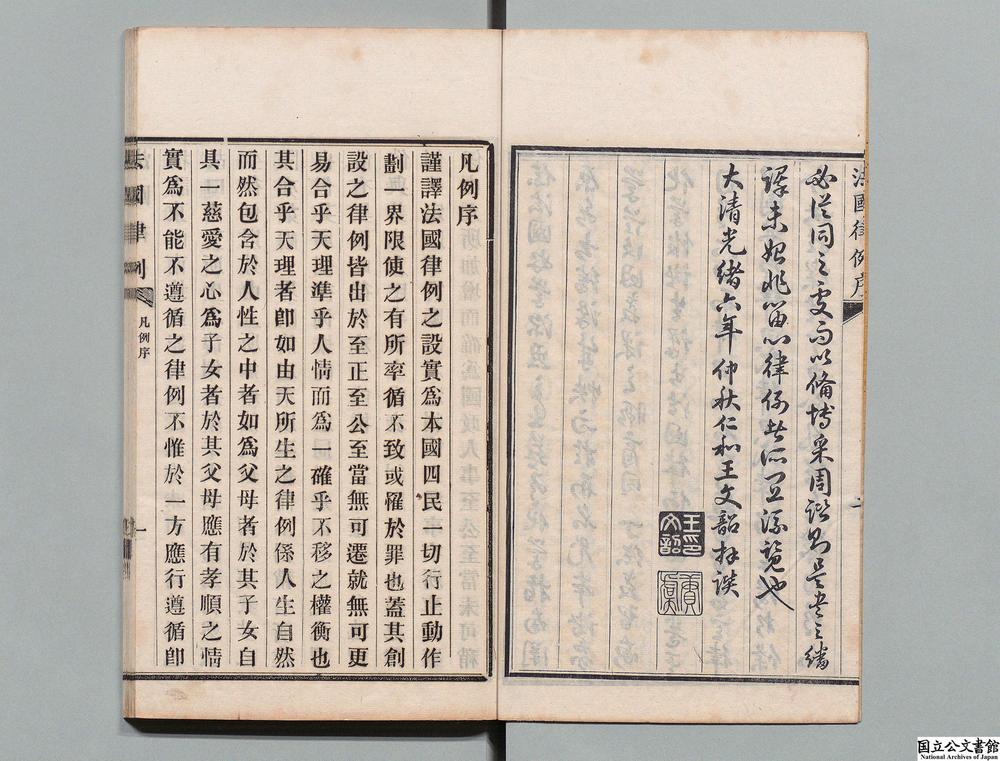 法國律例序
必從同之處而以備博采周諮則是書之繙
譯未始非留心律例者所宜流覽也
大清光緒六年仲秋仁和王文韶拜譔
王文韶印
夔
二
凡例序
謹譯法國律例之設實爲本國四民一切行止動作
劃一界限使之有所率循不致或罹於罪也蓋其創
設之律例皆出於至正至公至當無可遷就無可更
易合乎天理準乎人情而爲一確乎不移之權衡也
其合乎天理者卽如由天所生之律例係人生自然
而然包含於人性之中者如爲父母者於其子女自
具一慈愛之心爲子女者於其父母應有孝順之情
實爲不能不遵循之律例不惟於一方應行遵循卽
法國律例
凡例序
一
国立公文書館
National Archives of Japan